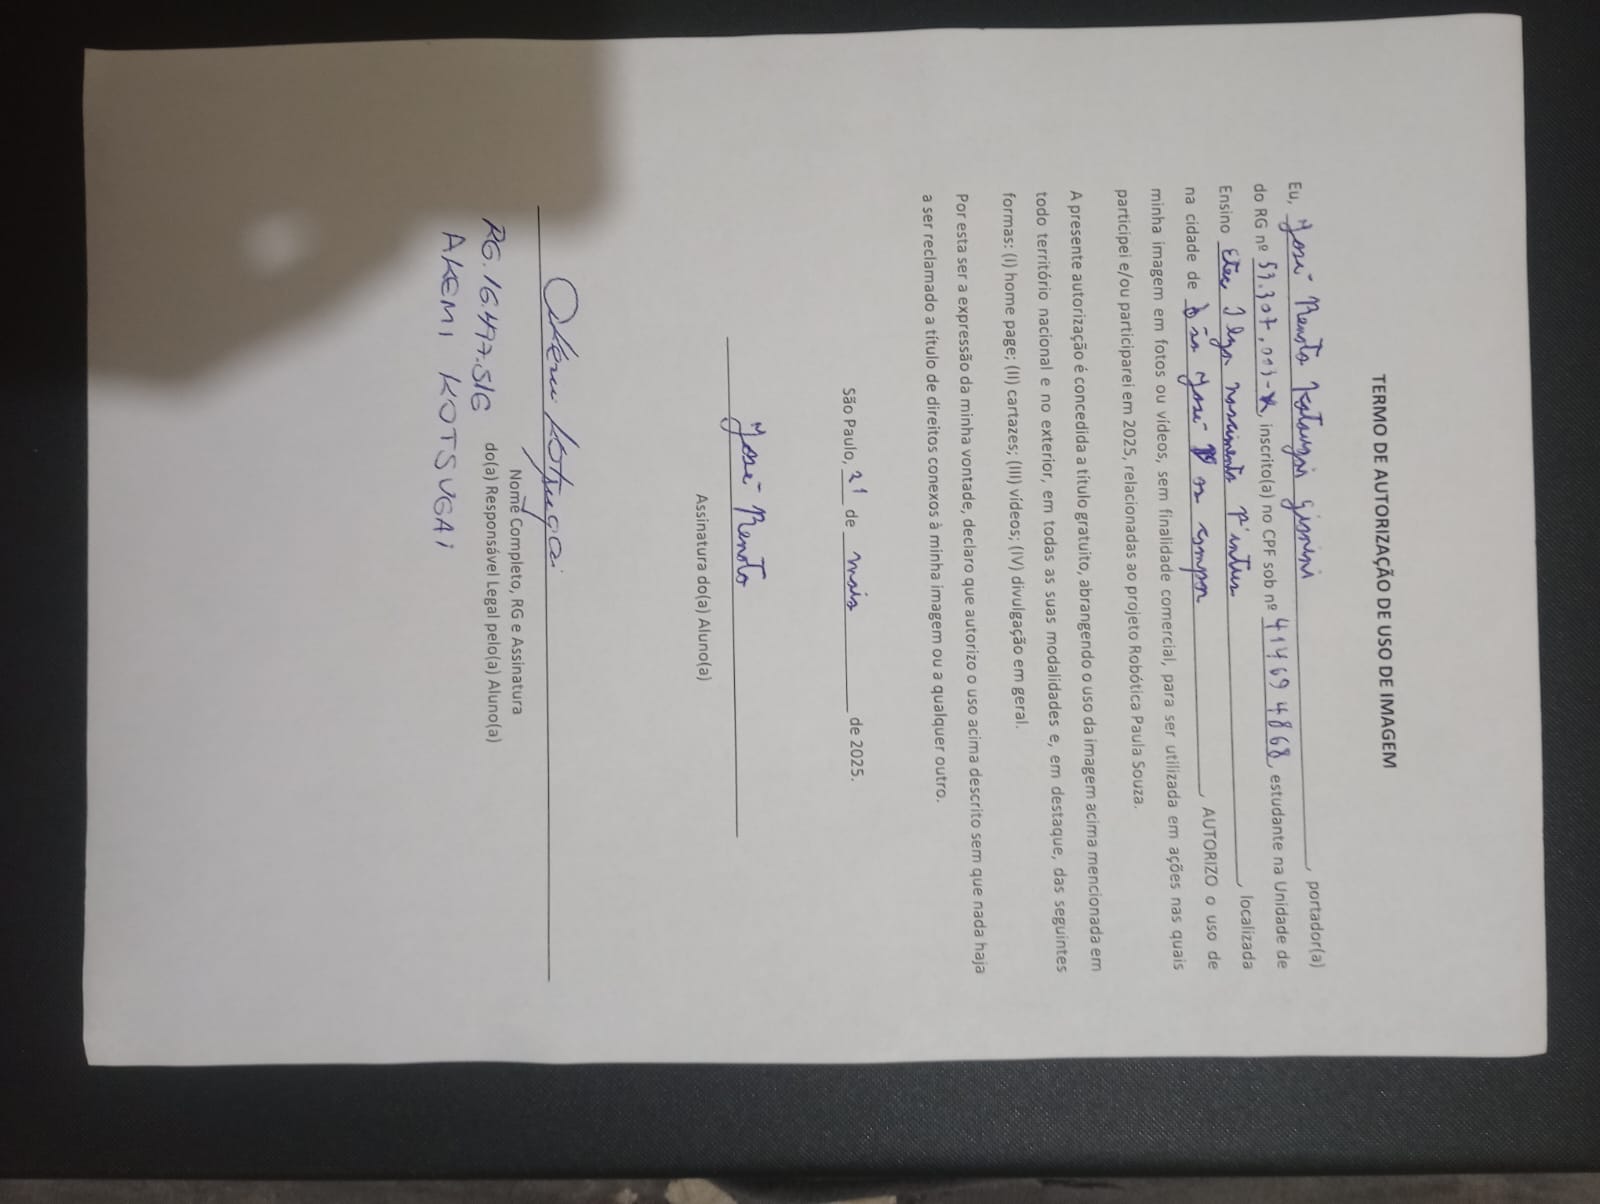 TERMO DE AUTORIZAÇÃO DE USO DE IMAGEM
Eu, José Renato Kotsugai , portador(a)
do RG nº 53.307. , inscrito(a) no CPF sob nº 41469 4868, estudante na Unidade de
Ensino Etec Ilza nascimento Pintus, localizada
na cidade de São José dos campos, AUTORIZO o uso de
minha imagem em fotos ou vídeos, sem finalidade comercial, para ser utilizada em ações nas quais
participei e/ou participarei em 2025, relacionadas ao projeto Robótica Paula Souza.
A presente autorização é concedida a título gratuito, abrangendo o uso da imagem acima mencionada em
todo território nacional e no exterior, em todas as suas modalidades e, em destaque, das seguintes
formas: (I) home page; (II) cartazes; (III) vídeos; (IV) divulgação em geral.
Por esta ser a expressão da minha vontade, declaro que autorizo o uso acima descrito sem que nada haja
a ser reclamado a título de direitos conexos à minha imagem ou a qualquer outro.
São Paulo, 21 de maio de 2025.
José Renato
Assinatura do(a) Aluno(a)
Akemi Kotsugai
Nome Completo, RG e Assinatura
RG. 16.497.516 do(a) Responsável Legal pelo(a) Aluno(a)
AKEMI KOTSUGAI